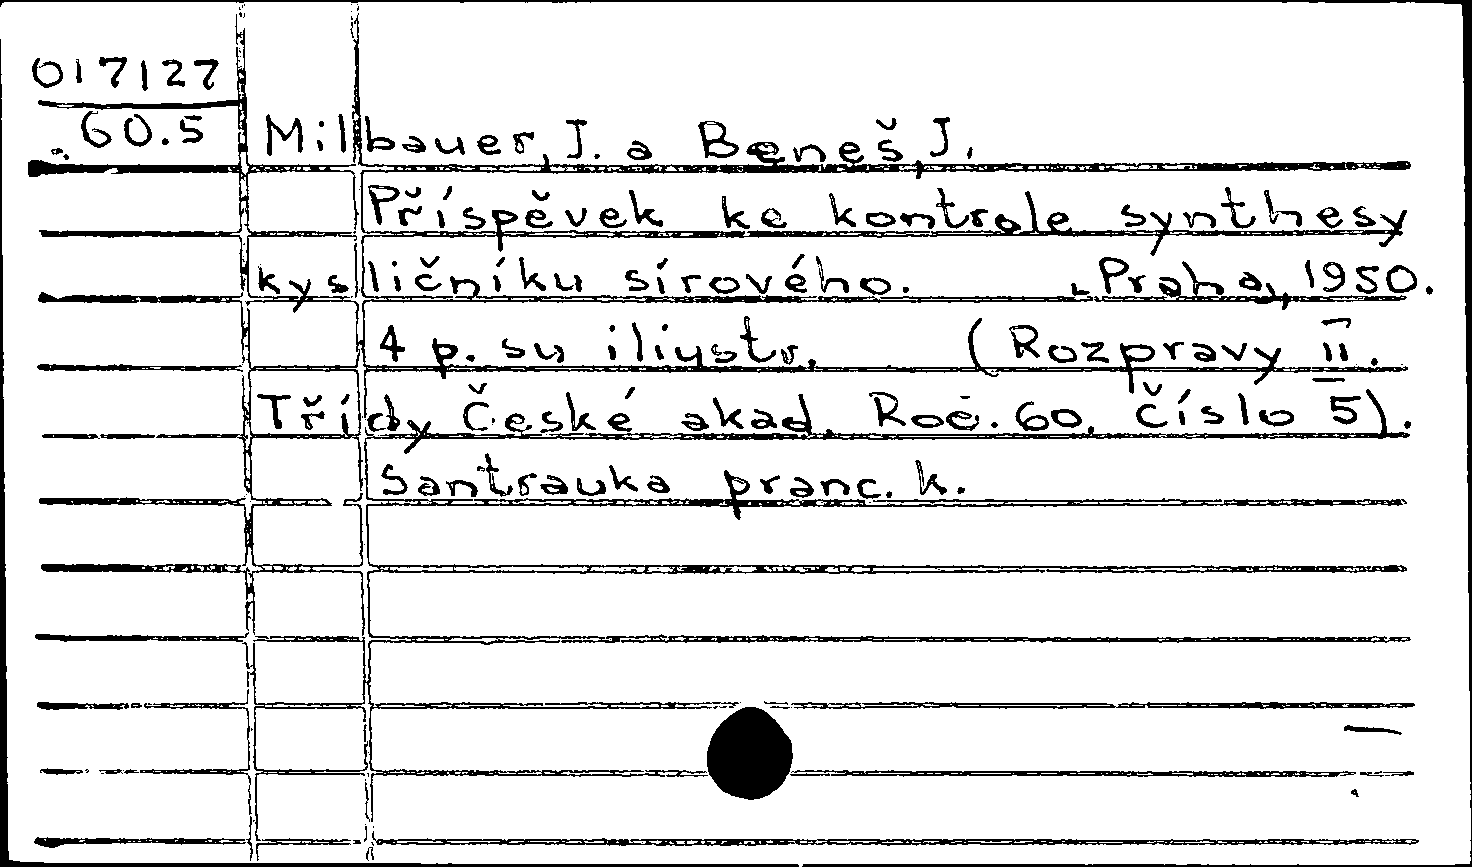 017127
60.5 Milbauer, J. a Beneš, J.
Příspěvek ke kontrole synthesy
kysličníku sírového. Praha, 1950.
4 p. su iliustr. (Rozpravy II.
Třídy České akad. Roč. 60. číslo 5).
Santrauka pranc. k.